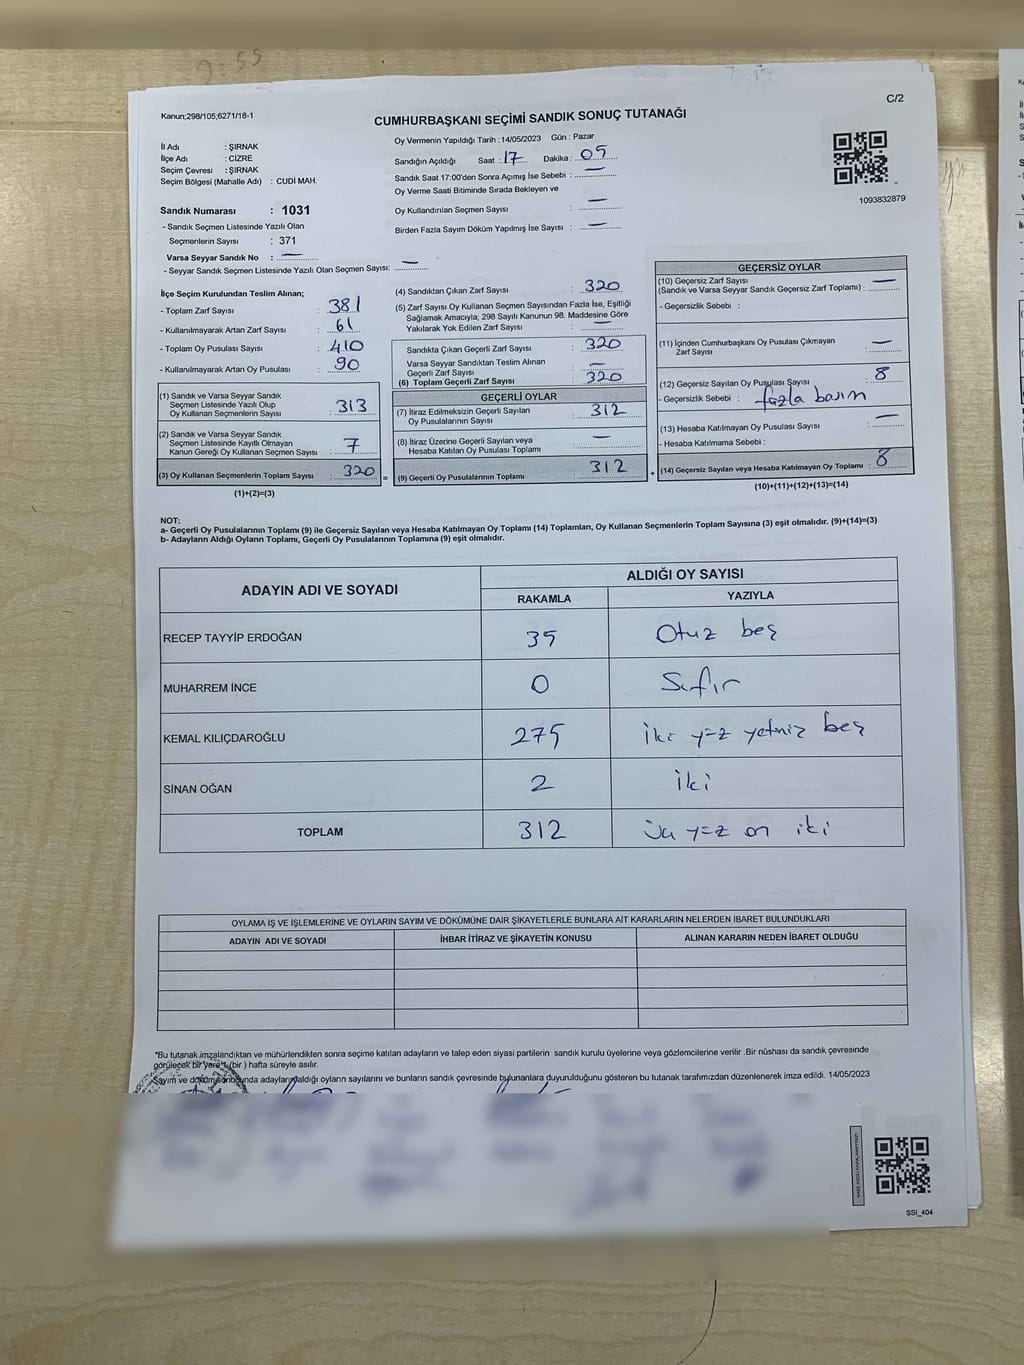 C/2
Kanun;298/105;6271/18-1
CUMHURBAŞKANI SEÇİMİ SANDIK SONUÇ TUTANAĞI
İl Adı : ŞIRNAK
İlçe Adı : CİZRE
Seçim Çevresi : ŞIRNAK
Seçim Bölgesi (Mahalle Adı) : CUDİ MAH.
Sandık Numarası : 1031
- Sandık Seçmen Listesinde Yazılı Olan
Seçmenlerin Sayısı : 371
Varsa Seyyar Sandık No : —
- Seyyar Sandık Seçmen Listesinde Yazılı Olan Seçmen Sayısı: —
Oy Vermenin Yapıldığı Tarih : 14/05/2023 Gün : Pazar
Sandığın Açıldığı Saat : 17 Dakika : 05
Sandık Saat 17:00'den Sonra Açımış İse Sebebi : —
Oy Verme Saati Bitiminde Sırada Bekleyen ve
Oy Kullandırılan Seçmen Sayısı : —
Birden Fazla Sayım Döküm Yapılmış İse Sayısı : —
1093832879
İlçe Seçim Kurulundan Teslim Alınan;
- Toplam Zarf Sayısı : 381
- Kullanılmayarak Artan Zarf Sayısı : 61
- Toplam Oy Pusulası Sayısı : 410
- Kullanılmayarak Artan Oy Pusulası : 90
(1) Sandık ve Varsa Seyyar Sandık
Seçmen Listesinde Yazılı Olup
Oy Kullanan Seçmenlerin Sayısı : 313
(2) Sandık ve Varsa Seyyar Sandık
Seçmen Listesinde Kayıtlı Olmayan
Kanun Gereği Oy Kullanan Seçmen Sayısı : 7
(3) Oy Kullanan Seçmenlerin Toplam Sayısı : 320
(1)+(2)=(3)
(4) Sandıktan Çıkan Zarf Sayısı : 320
(5) Zarf Sayısı Oy Kullanan Seçmen Sayısından Fazla İse, Eşitliği
Sağlamak Amacıyla; 298 Sayılı Kanunun 98. Maddesine Göre
Yakılarak Yok Edilen Zarf Sayısı : —
Sandıkta Çıkan Geçerli Zarf Sayısı : 320
Varsa Seyyar Sandıktan Teslim Alınan
Geçerli Zarf Sayısı : —
(6) Toplam Geçerli Zarf Sayısı : 320
GEÇERLİ OYLAR
(7) İtiraz Edilmeksizin Geçerli Sayılan
Oy Pusulalarının Sayısı : 312
(8) İtiraz Üzerine Geçerli Sayılan veya
Hesaba Katılan Oy Pusulası Toplamı : —
= (9) Geçerli Oy Pusulalarının Toplamı : 312
GEÇERSİZ OYLAR
(10) Geçersiz Zarf Sayısı
(Sandık ve Varsa Seyyar Sandık Geçersiz Zarf Toplamı) : —
- Geçersizlik Sebebi :
(11) İçinden Cumhurbaşkanı Oy Pusulası Çıkmayan
Zarf Sayısı : —
(12) Geçersiz Sayılan Oy Pusulası Sayısı : 8
- Geçersizlik Sebebi : fazla basım
(13) Hesaba Katılmayan Oy Pusulası Sayısı : —
- Hesaba Katılmama Sebebi :
+ (14) Geçersiz Sayılan veya Hesaba Katılmayan Oy Toplamı : 8
(10)+(11)+(12)+(13)=(14)
NOT:
a- Geçerli Oy Pusulalarının Toplamı (9) ile Geçersiz Sayılan veya Hesaba Katılmayan Oy Toplamı (14) Toplamları, Oy Kullanan Seçmenlerin Toplam Sayısına (3) eşit olmalıdır. (9)+(14)=(3)
b- Adayların Aldığı Oyların Toplamı, Geçerli Oy Pusulalarının Toplamına (9) eşit olmalıdır.
ADAYIN ADI VE SOYADI ALDIĞI OY SAYISI
RAKAMLA YAZIYLA
RECEP TAYYİP ERDOĞAN 35 Otuz beş
MUHARREM İNCE 0 Sıfır
KEMAL KILIÇDAROĞLU 275 iki yüz yetmiş beş
SİNAN OĞAN 2 iki
TOPLAM 312 üç yüz on iki
OYLAMA İŞ VE İŞLEMLERİNE VE OYLARIN SAYIM VE DÖKÜMÜNE DAİR ŞİKAYETLERLE BUNLARA AİT KARARLARIN NELERDEN İBARET BULUNDUKLARI
ADAYIN ADI VE SOYADI İHBAR İTİRAZ VE ŞİKAYETİN KONUSU ALINAN KARARIN NEDEN İBARET OLDUĞU
*Bu tutanak imzalandıktan ve mühürlendikten sonra seçime katılan adayların ve talep eden siyasi partilerin sandık kurulu üyelerine veya gözlemcilerine verilir .Bir nüshası da sandık çevresinde
görülecek bir yere 1 (bir ) hafta süreyle asılır.
Sayım ve döküm sonucunda adayların aldığı oyların sayılarını ve bunların sandık çevresinde bulunanlara duyurulduğunu gösteren bu tutanak tarafımızdan düzenlenerek imza edildi. 14/05/2023
SSI_404